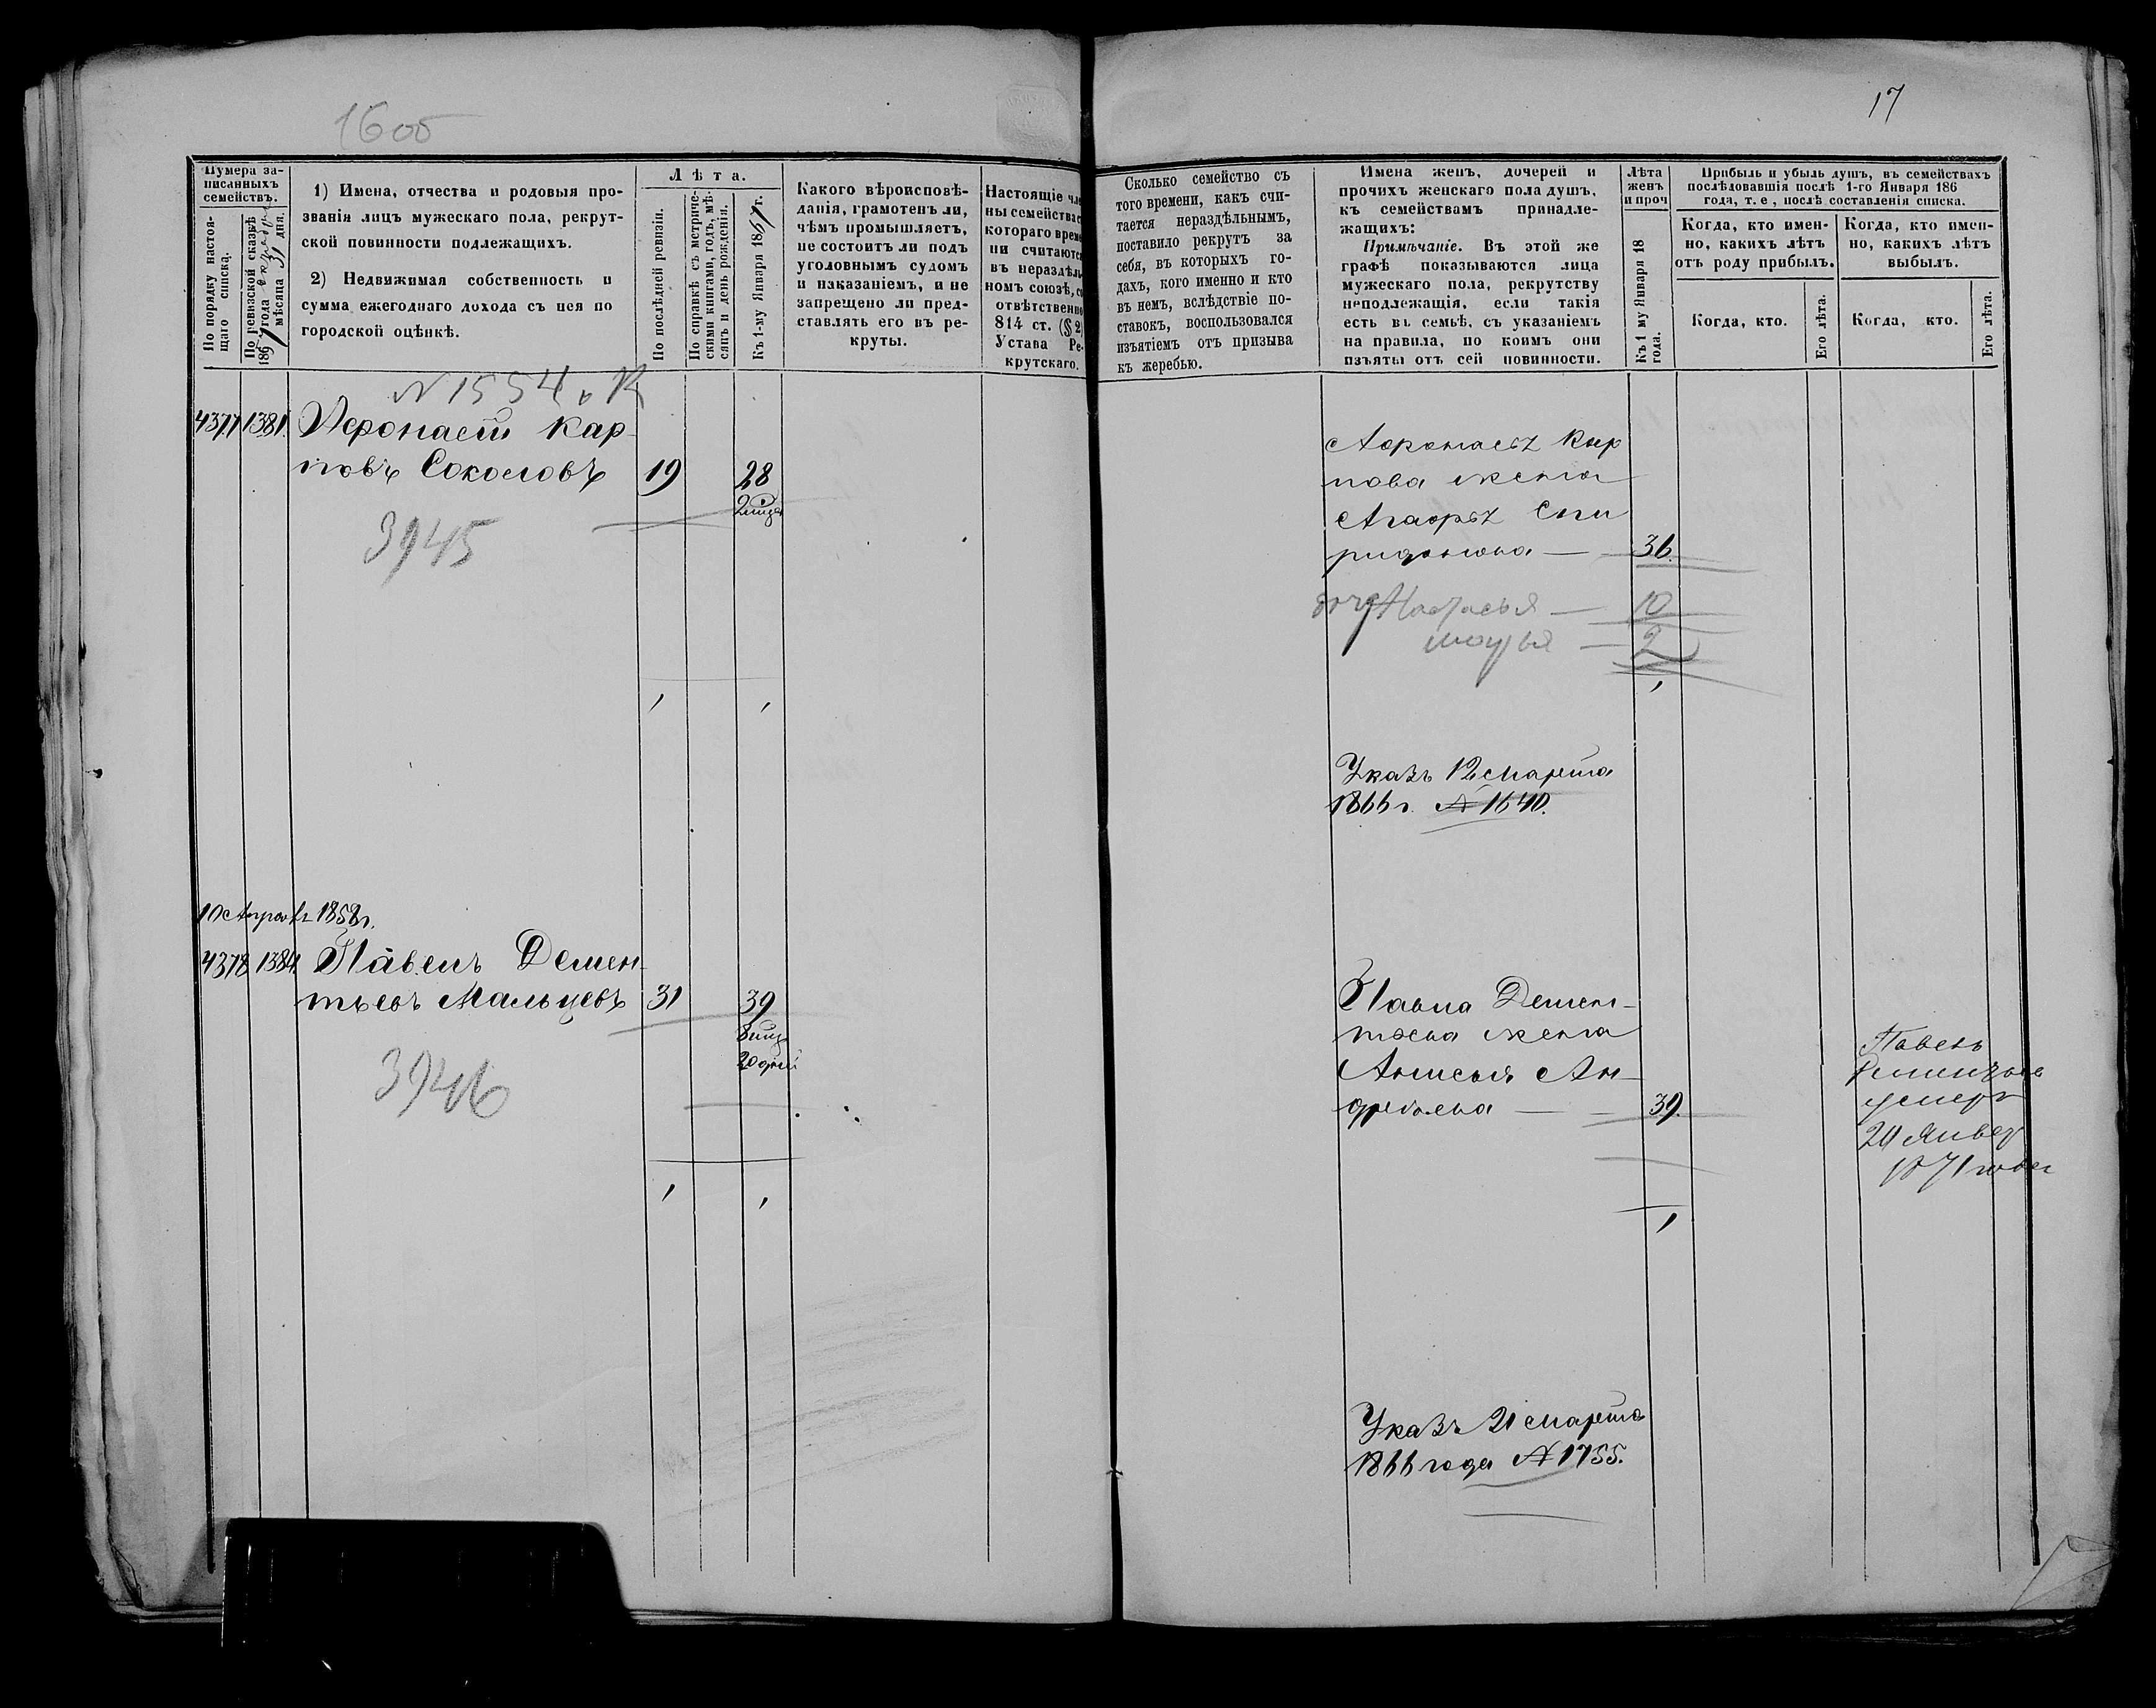 1600
17
Нумера за-
писанныхъ
семействъ.
По порядку настоя-
щаго списка.
По ревизской сказкѣ
185 года
мѣсяца 31 дня.
1) Имена, отчества и родовыя про-
званія лицъ мужескаго пола, рекрут-
ской повинности подлежащихъ.
2) Недвижимая собственность и
сумма ежегоднаго дохода съ нея по
городской оцѣнкѣ.
Лѣта.
По послѣдней ревизіи.
По справкѣ съ метриче-
скими книгами, годъ, мѣ-
сяцъ и день рожденія.
Къ 1-му Января 1867 г.
Какого вѣроисповѣ-
данія, грамотенъ ли,
чѣмъ промышляетъ,
не состоитъ ли подъ
уголовнымъ судомъ
и наказаніемъ, и не
запрещено ли пред-
ставлять его въ ре-
круты.
Настоящіе чле
ны семейства с
котораго време
ни считаются
въ нераздѣль
номъ союзѣ, со
отвѣтственно
814 ст. (§ 2)
Устава Ре-
крутскаго.
Сколько семейство съ
того времени, какъ счи-
тается нераздѣльнымъ,
поставило рекрутъ за
себя, въ которыхъ го-
дахъ, кого именно и кто
въ немъ, вслѣдствіе по-
ставокъ, воспользовался
изъятіемъ отъ призыва
къ жеребью.
Имена женъ, дочерей и
прочихъ женскаго пола душъ,
къ семействамъ принадле-
жащихъ:
Примѣчаніе. Въ этой же
графѣ показываются лица
мужескаго пола, рекрутству
неподлежащія, если такія
есть въ семьѣ, съ указаніемъ
на правила, по коимъ они
изъяты отъ сей повинности.
Лѣта
женъ
и проч
Къ 1 му Января 18
года.
Прибыль и убыль душъ, въ семействахъ
послѣдовавшія послѣ 1-го Января 186
года, т. е, послѣ составленія списка.
Когда, кто имен-
но, какихъ лѣтъ
отъ роду прибылъ.
Когда, кто имен-
но, какихъ лѣтъ
выбылъ.
Когда, кто.
Его лѣта.
Когда, кто.
Его лѣта.
N 1554
4377 1381. Афонасій Кар-
повъ Соколовъ 19 28
3945
Афонасья Кар
пова жена
Агафья Спи
ридонова — 36.
Настасья — 10
— 2
Указъ 12 Марта
1866 г. № 1640.
1858 г.
4378 1384. Павелъ Демен-
тьевъ Мальцевъ 31 39
8 мц
20 дней
3946
Павла Демен-
тьева жена
Анисья Ан-
дреева — 39.
Павелъ
Дементьев
умеръ
20 Январ
1871 года
Указъ 21 Марта
1866 года № 1755.